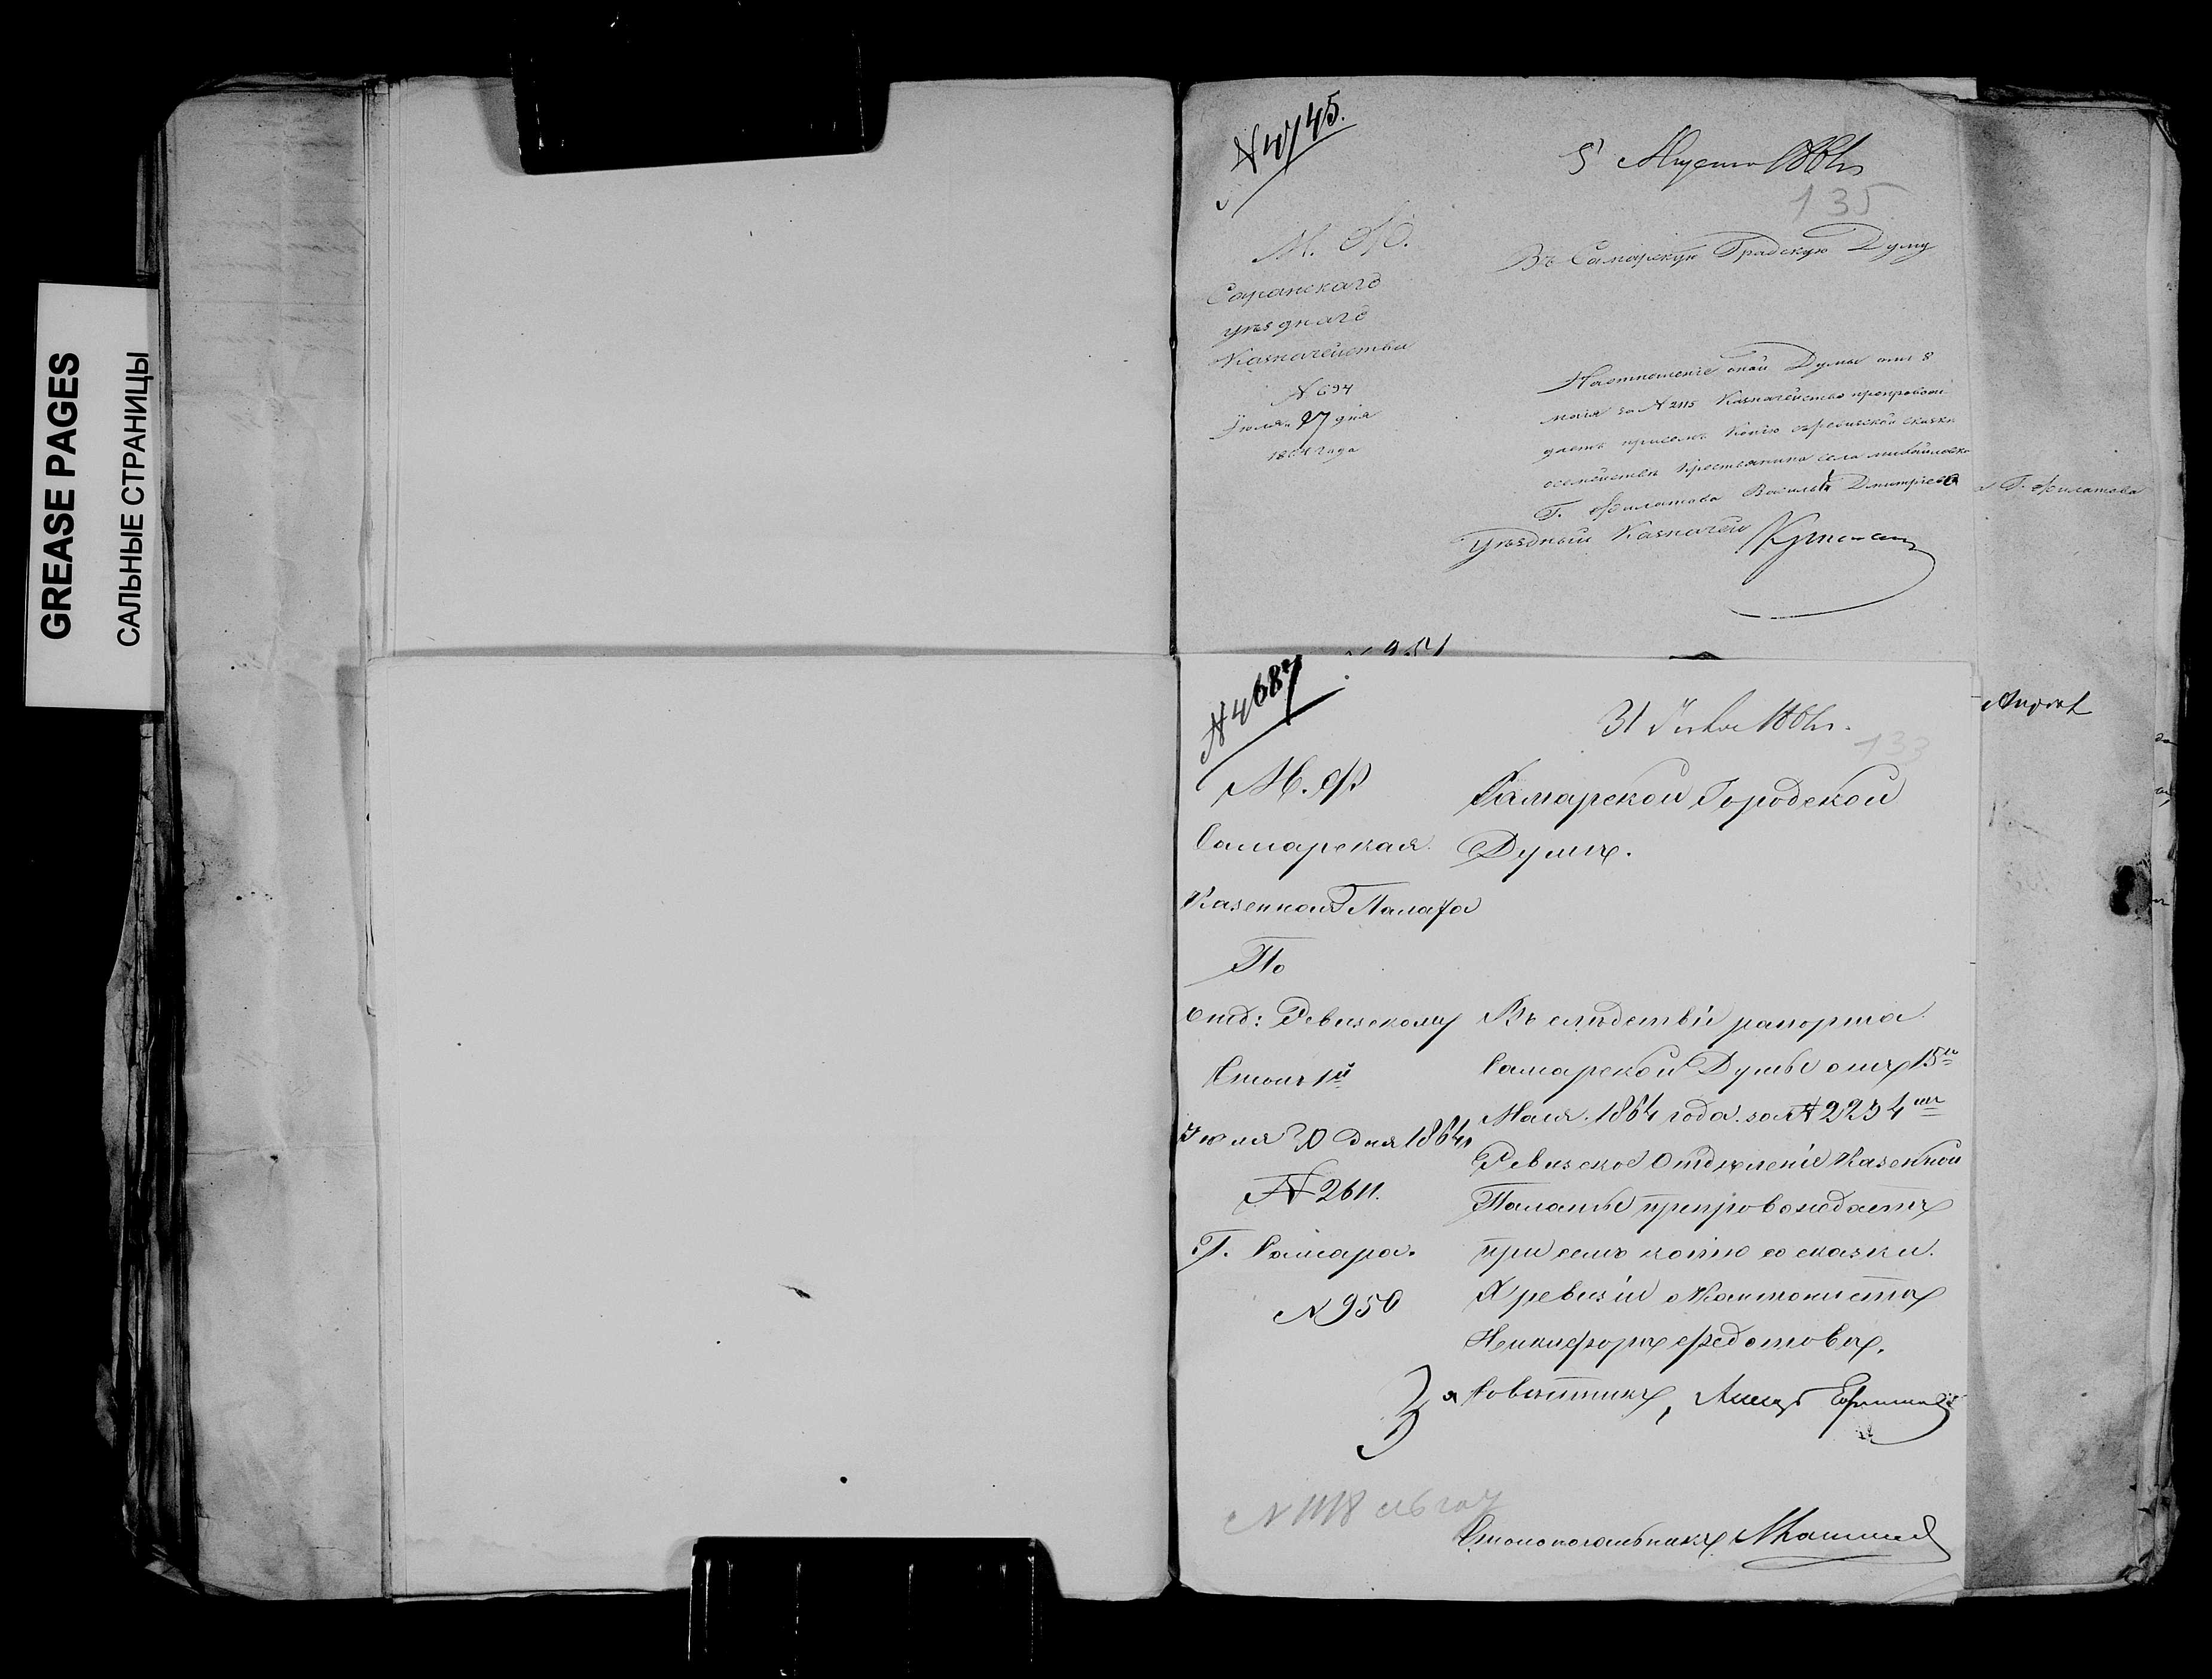 GREASE PAGES
САЛЬНЫЕ СТРАНИЦЫ
№ 4745.
5 Августа 1864
135
М. Ф.
Саранскаго
уѣзднаго
Казначейства
№ 694
Іюля 27 дня
1864 года
Въ Самарскую Градскую Думу
На отношеніе оной Думы отъ 8
маія за № 2115 Казначейство препровож
даетъ при семъ копію съ ревизской сказки
о семействѣ крестьянина села Михайловка
Г. Филатова Василья Дмитріева
Уѣздный Казначей
Г. Филатова
№ 951
№ 4687
31 Іюля 1864.
133
М. Ф.
Самарская
Казенная Палата
По
Отд: Ревизскому
Столъ 1й
Іюля 30 дня 1864
№ 2611.
Г. Самара.
№ 950
Самарской Городской
Думѣ.
Въ слѣдствіи рапорта
Самарской Думы отъ 15го
Маія 1864 года за № 2234мъ
Ревизское Отдѣленіе Казенной
Палаты препровождаетъ
при семъ копію со сказки
Х ревизіи о Кантонистѣ
Никифорѣ Федотовѣ.
За Совѣтника,
Столоначальникъ